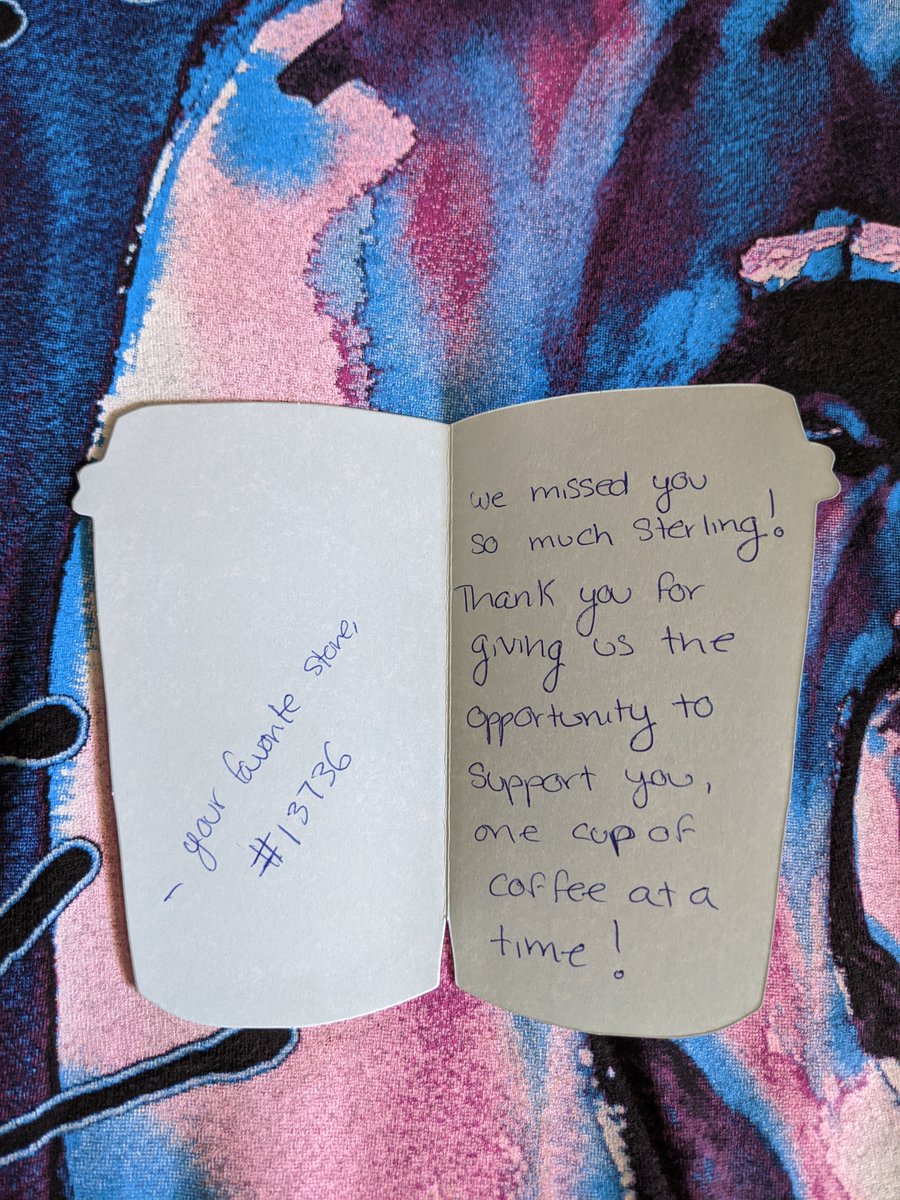 - your favorite store,
#13736
we missed you
so much Sterling!
Thank you for
giving us the
opportunity to
support you,
one cup of
coffee at a
time!